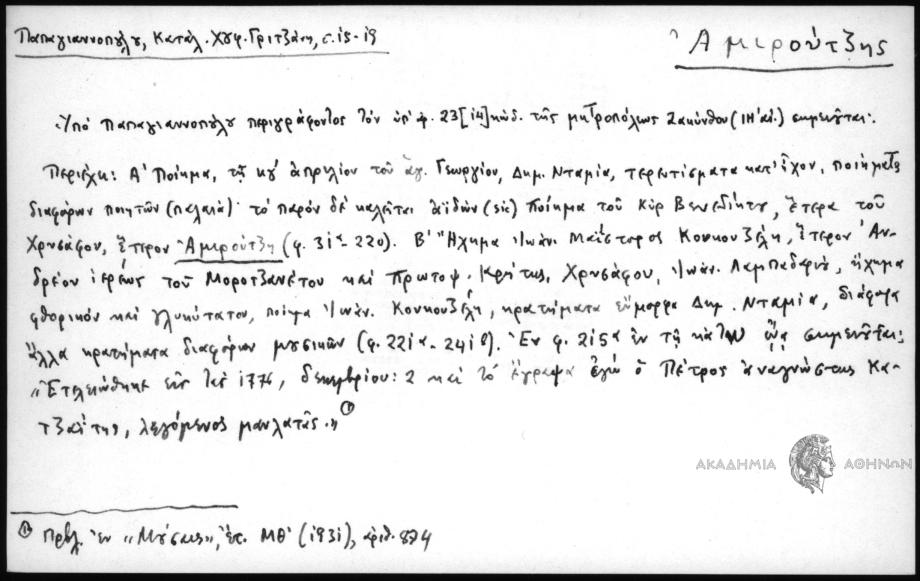 Παπαγιαννοπύλυ, Κατάλ. Χγφ. Γριτζάνη, σ. 15-19
Ἀμιρούτζης
Ὑπό Παπαγιαννοπύλυ περιγράφοντος τόν ὑπ' φ. 23[14] κώδ. τῆς μητροπόλεως Ζακύνθου (ΙΗ' αἰ.) σημειῦται:
Περιέχει: Α' Ποίημα, τῇ κγ' ἀπριλίου τοῦ ἁγ. Γεωργίου, Δημ. Νταμία, τερετίσματα κατ' ἦχον, ποιήματα
διαφόρων ποιητῶν (παλαιά)· τό παρόν δέ καλεῖται ἀϊδών (sic) ποίημα τοῦ Κύρ Βενεδίκτυ, ἕτερα τοῦ
Χρυσάφου, ἕτερον Ἀμιρούτζη (φ. 31α - 220). Β' Ἤχημα Ἰωάν. Μαΐστορος Κουκουζέλη, ἕτερον Ἀν-
δρέου ἱερέως τοῦ Μοροτζανέτου καί Πρωτοψ. Κρήτης, Χρυσάφου, Ἰωάν. Λαμπαδαρίυ, ἤχημα
φθορικόν καί γλυκύτατον, ποίημα Ἰωάν. Κουκουζέλη, κρατήματα εὔμορφα Δημ. Νταμία, διάφορα
ἄλλα κρατήματα διαφόρων μυσικῶν (φ. 221α - 241β). Ἐν φ. 215α ἐν τῇ κάτω ᾤᾳ σημειῦται:
«Ἐτελειώθηκε εἰς τάς 1776, δεκεμβρίου: 2 καί τό ἔγραψα ἐγώ ὁ Πέτρος ἀναγνώστης Κα-
τζαΐτης, λεγόμενος μαυλατᾶς.» (1)
ΑΚΑΔΗΜΙΑ ΑΘΗΝΩΝ
(1) Πρβλ. ἐν «Μύσαις», ἔτ. ΜΘ' (1931), ἀριθ. 874